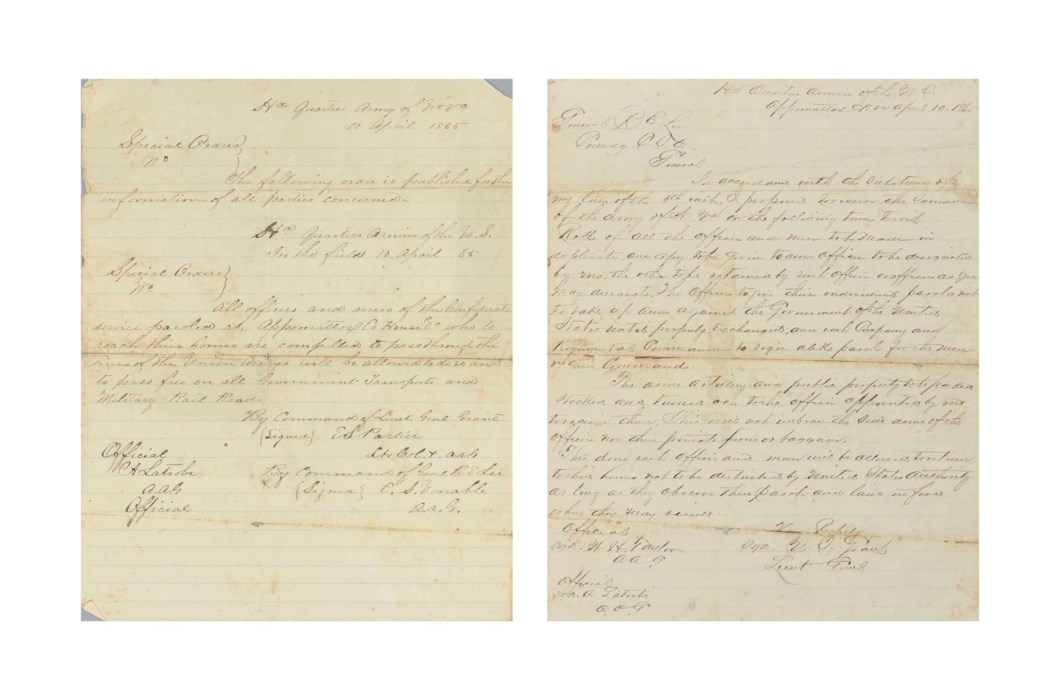 Hd Quarters Army of No Va
10 April 1865
Special Orders
No
The following order is published for the
information of all parties concerned.
Hd Quarters Armies of the U.S.
In the field 10 April 65
Special Orders
No
All officers and men of the Confederate
service paroled at Appomattox Co House Va who to
reach their homes are compelled to pass through the
lines of the Union Armies will be allowed to do so and
to pass free on all Government Transports and
Military Rail Roads.
By Command of Lieut Genl Grant
(Signed) E S Parker
Lt. Col. & AAG
Official
By Command of Genl R E Lee
H Latrobe
(Signed) C. S. Venable
A.A.G
A.A.G.
Official
Hd Quarters Armies of the U.S.
Appomattox C H Va April 10. 1865
General R E Lee
Comdg C.S.A.
General
In accordance with the substance of
my letter of the 8th inst. I propose to receive the surrender
of the Army of N. Va on the following terms to wit
Rolls of all the officers and men to be made in
duplicate, one copy to be given to an officer to be designated
by me, the other to be retained by such officer or officers as you
may designate. The officers to give their individual paroles not
to take up arms against the Government of the United
States until properly exchanged, and each Company and
Regimental Commander to sign a like parole for the men
of their Commands.
The arms artillery and public property to be parked
stacked and turned over to the officer appointed by me
to receive them. This will not embrace the side arms of the
officers nor their private horses or baggage.
This done each officer and man will be allowed to return
to his home not to be disturbed by United States Authority
as long as they observe their parole and laws in force
where they may reside.
Official
Sgd. W. H. Taylor
Sgd. U. S. Grant
A A G
Lieut Genl
Official
Sgd. Latrobe
A. A. G